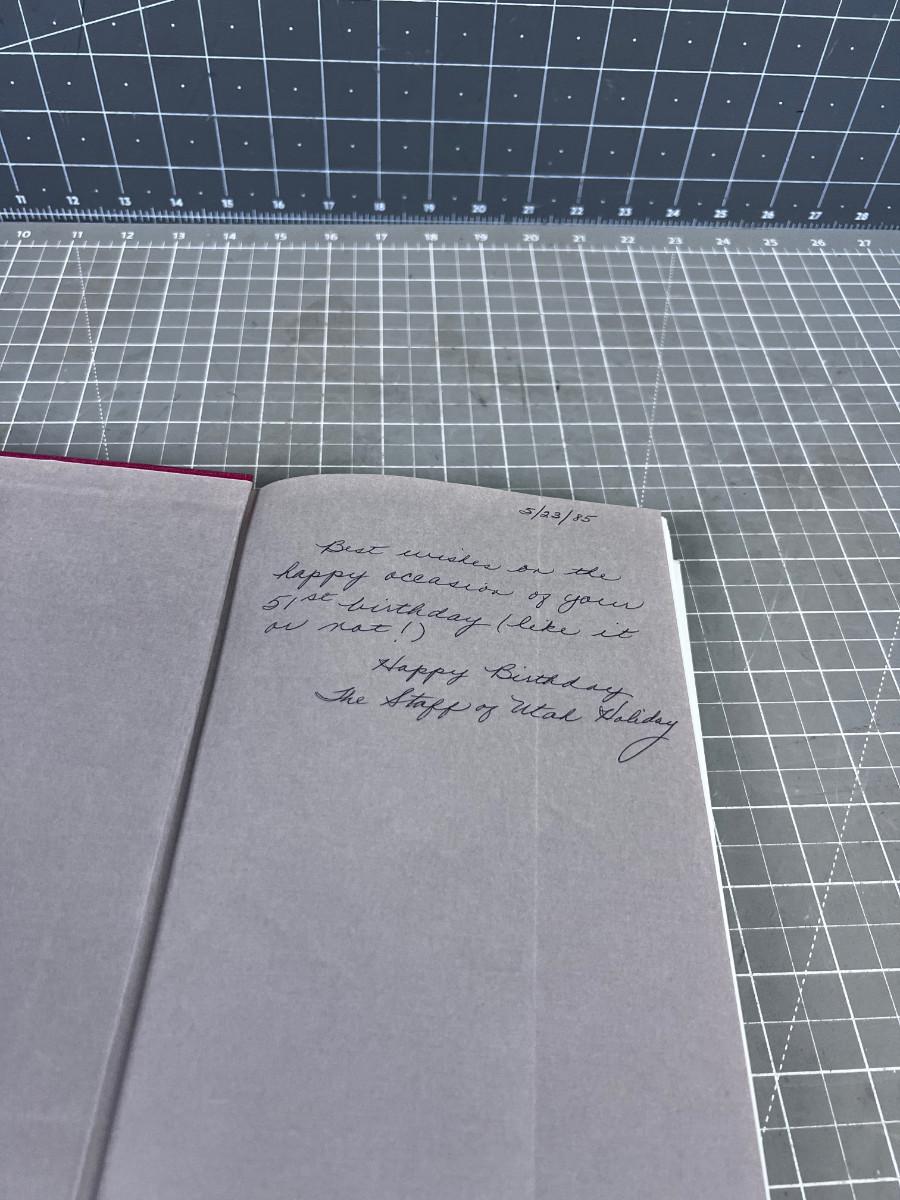 11 12 13 14 15 16 17 18 19 20 21 22 23 24 25 26 27 28
10 11 12 13 14 15 16 17 18 19 20 21 22 23 24 25 26 27
5/23/85
Best wishes on the
happy occasion of your
51st birthday (like it
or not!)
Happy Birthday
The Staff of Utah Holiday